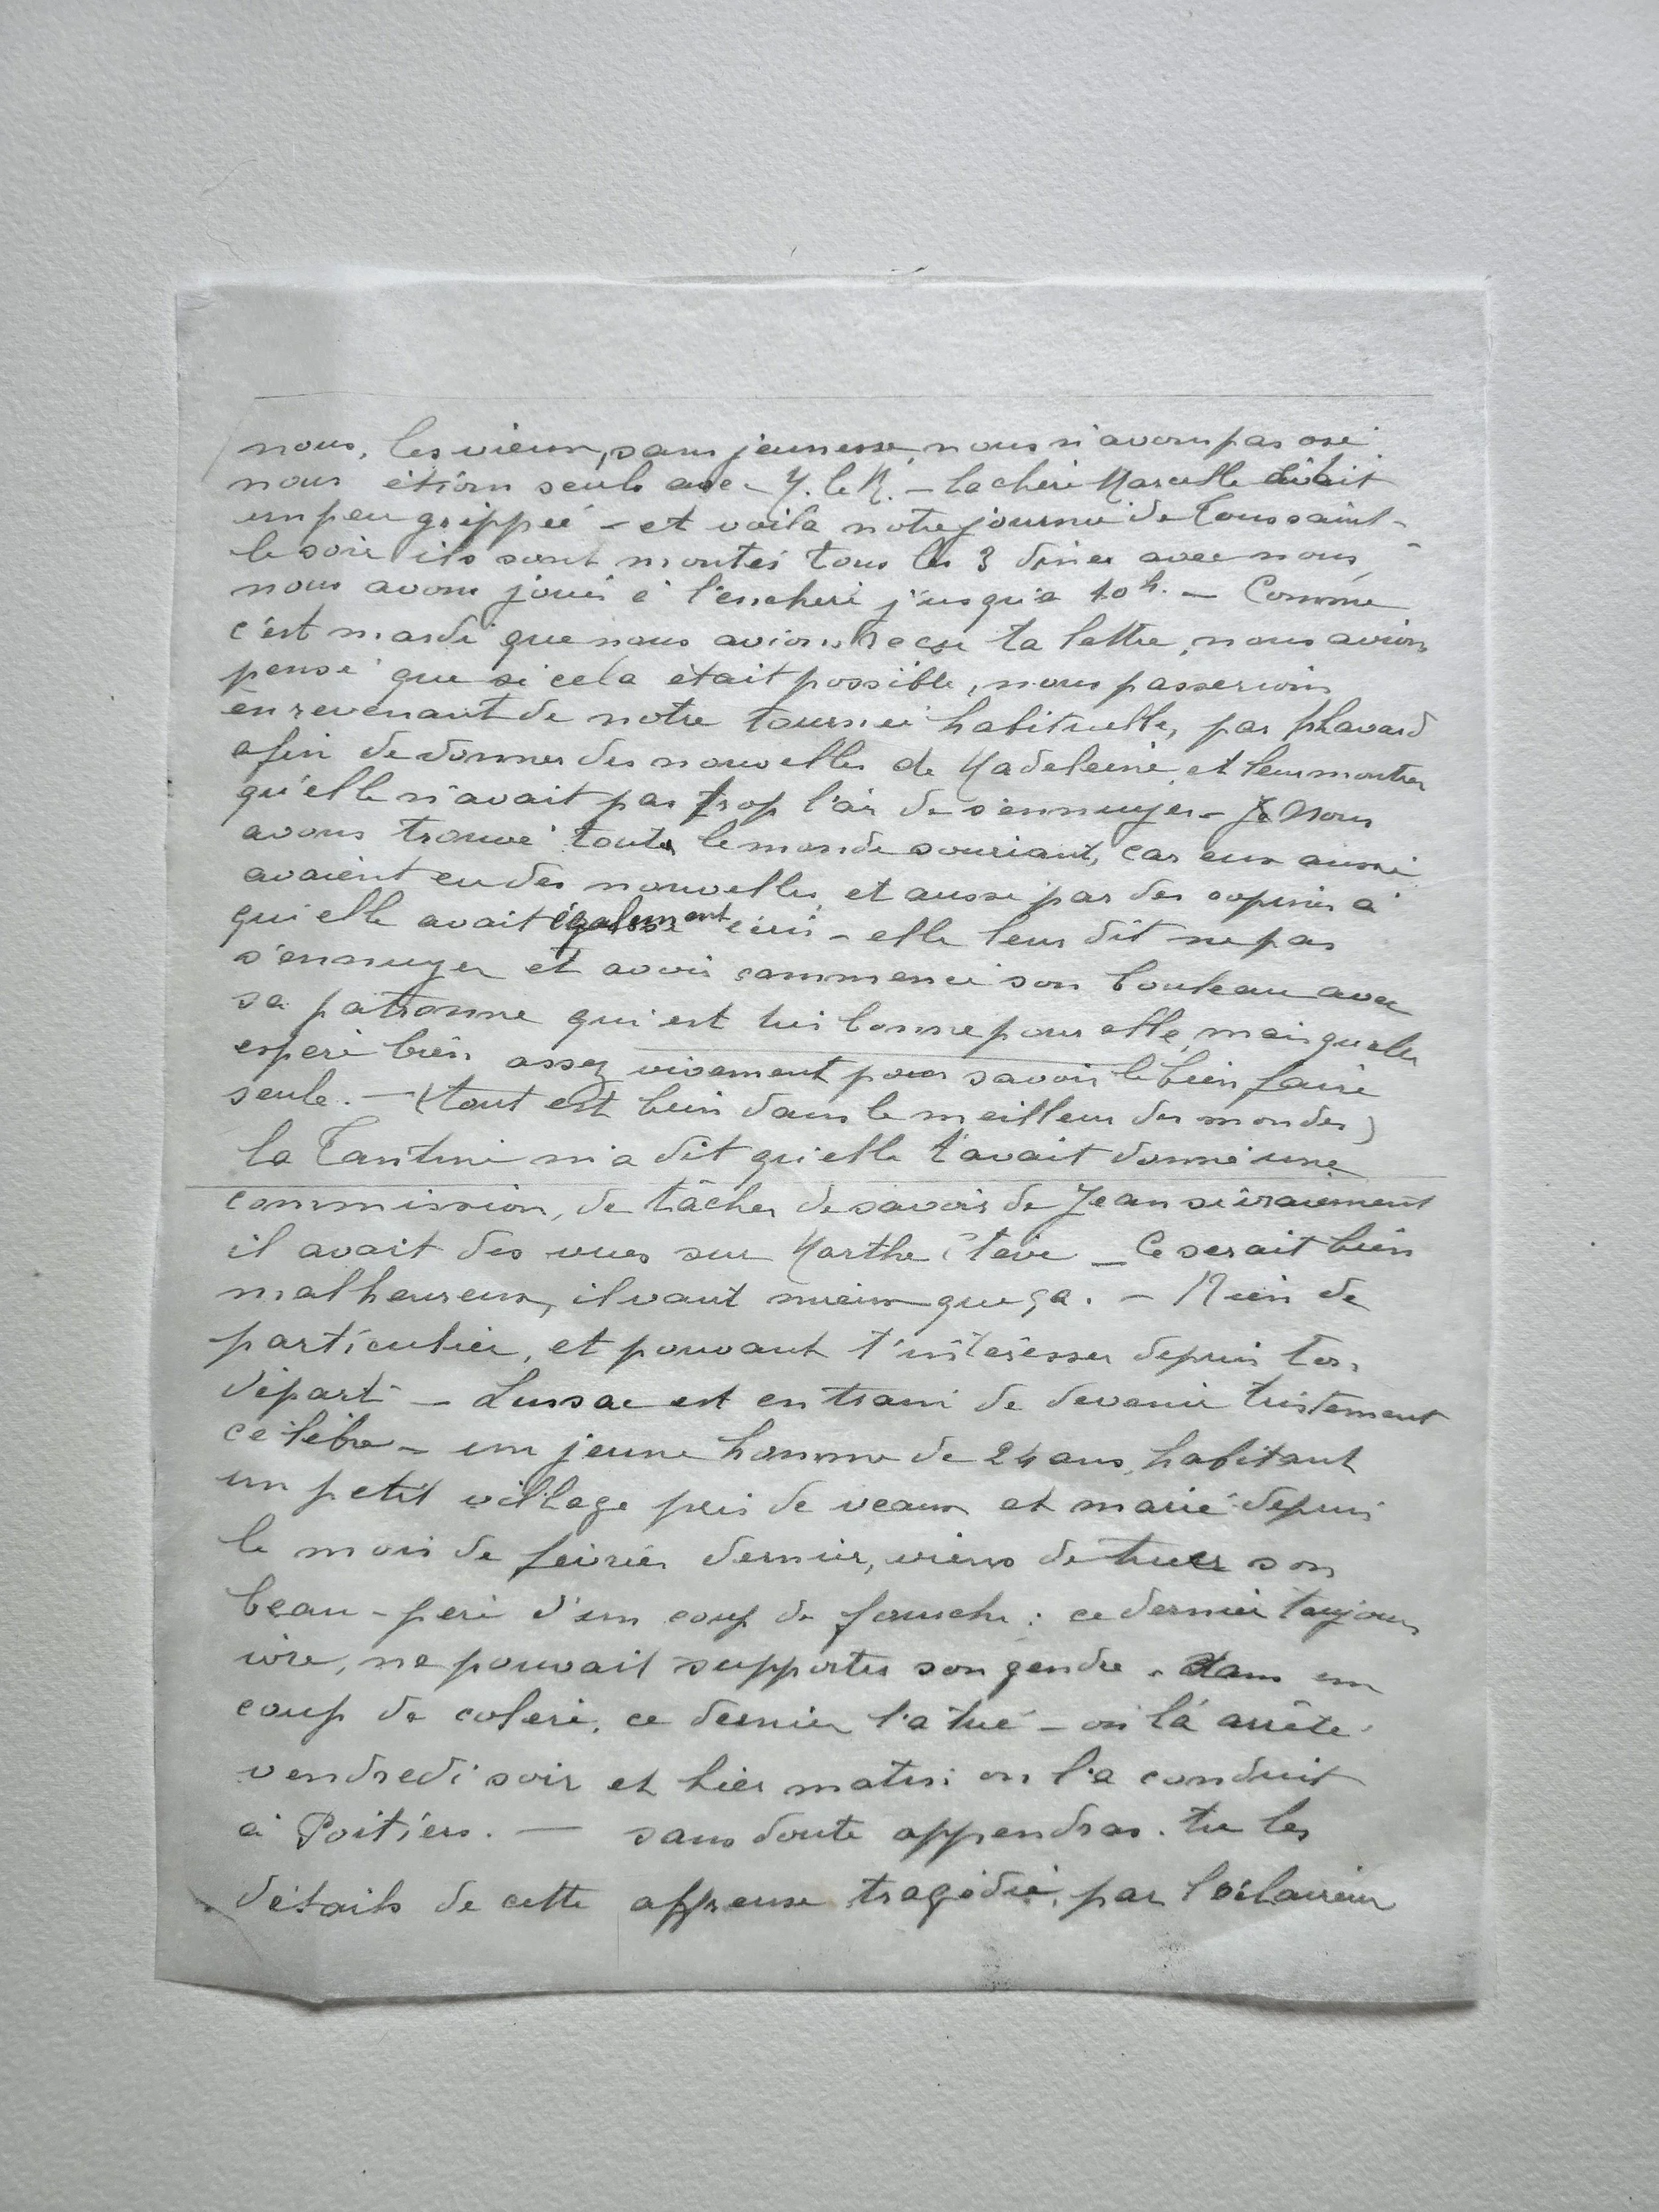 nous, les vieux, sans jeunesse, nous n'avons pas osé
nous étions seuls avec Y. le R. – la chère Marcelle était
un peu grippée – et voilà notre journée de Toussaint –
le soir ils sont montés tous les 3 diner avec nous,
nous avons joués à l'enchère j'usqu'à 10h. – Comme
c'est mardi que nous avions reçu ta lettre, nous avions
pensé que si cela était possible, nous passerions
en revenant de notre tournée habituelle, par
afin de donner des nouvelles de Madeleine, et leur montrer
qu'elle n'avait pas trop l'air de s'ennuyer – Nous
avons trouvé tout le monde souriant, car eux aussi
avaient eu des nouvelles, et aussi par des copines à
qui elle avait également écrit – elle leur dit ne pas
s'ennuyer et avoir commencé son bouleau avec
sa patronne qui est très bonne pour elle, mais qu'elle
espère bien assez vivement pour savoir le bien faire
seule. – (tout est bien dans le meilleur des mondes)
la Tantine m'a dit qu'elle t'avait donné une
commission, de tâcher de savoir de Jean si vraiement
il avait des vues sur Marthe – Ce serait bien
malheureux, il vaut mieux que ça. – Rien de
particulier, et pouvant t'intéresser depuis ton
départ – Lussac est en train de devenir tristement
célèbre – un jeune homme de 24 ans, habitant
un petit village près de veaux et marié depuis
le mois de février dernier, viens de tuer son
beau-père d'un coup de fourche : ce dernier toujours
ivre, ne pouvait supporter son gendre. dans un
coup de colère, ce dernier l'a tué – on l'a arrêté
vendredi soir et hier matin on l'a conduit
à Poitiers. — sans doute appendras-tu les
détails de cette affreuse tragédie, par